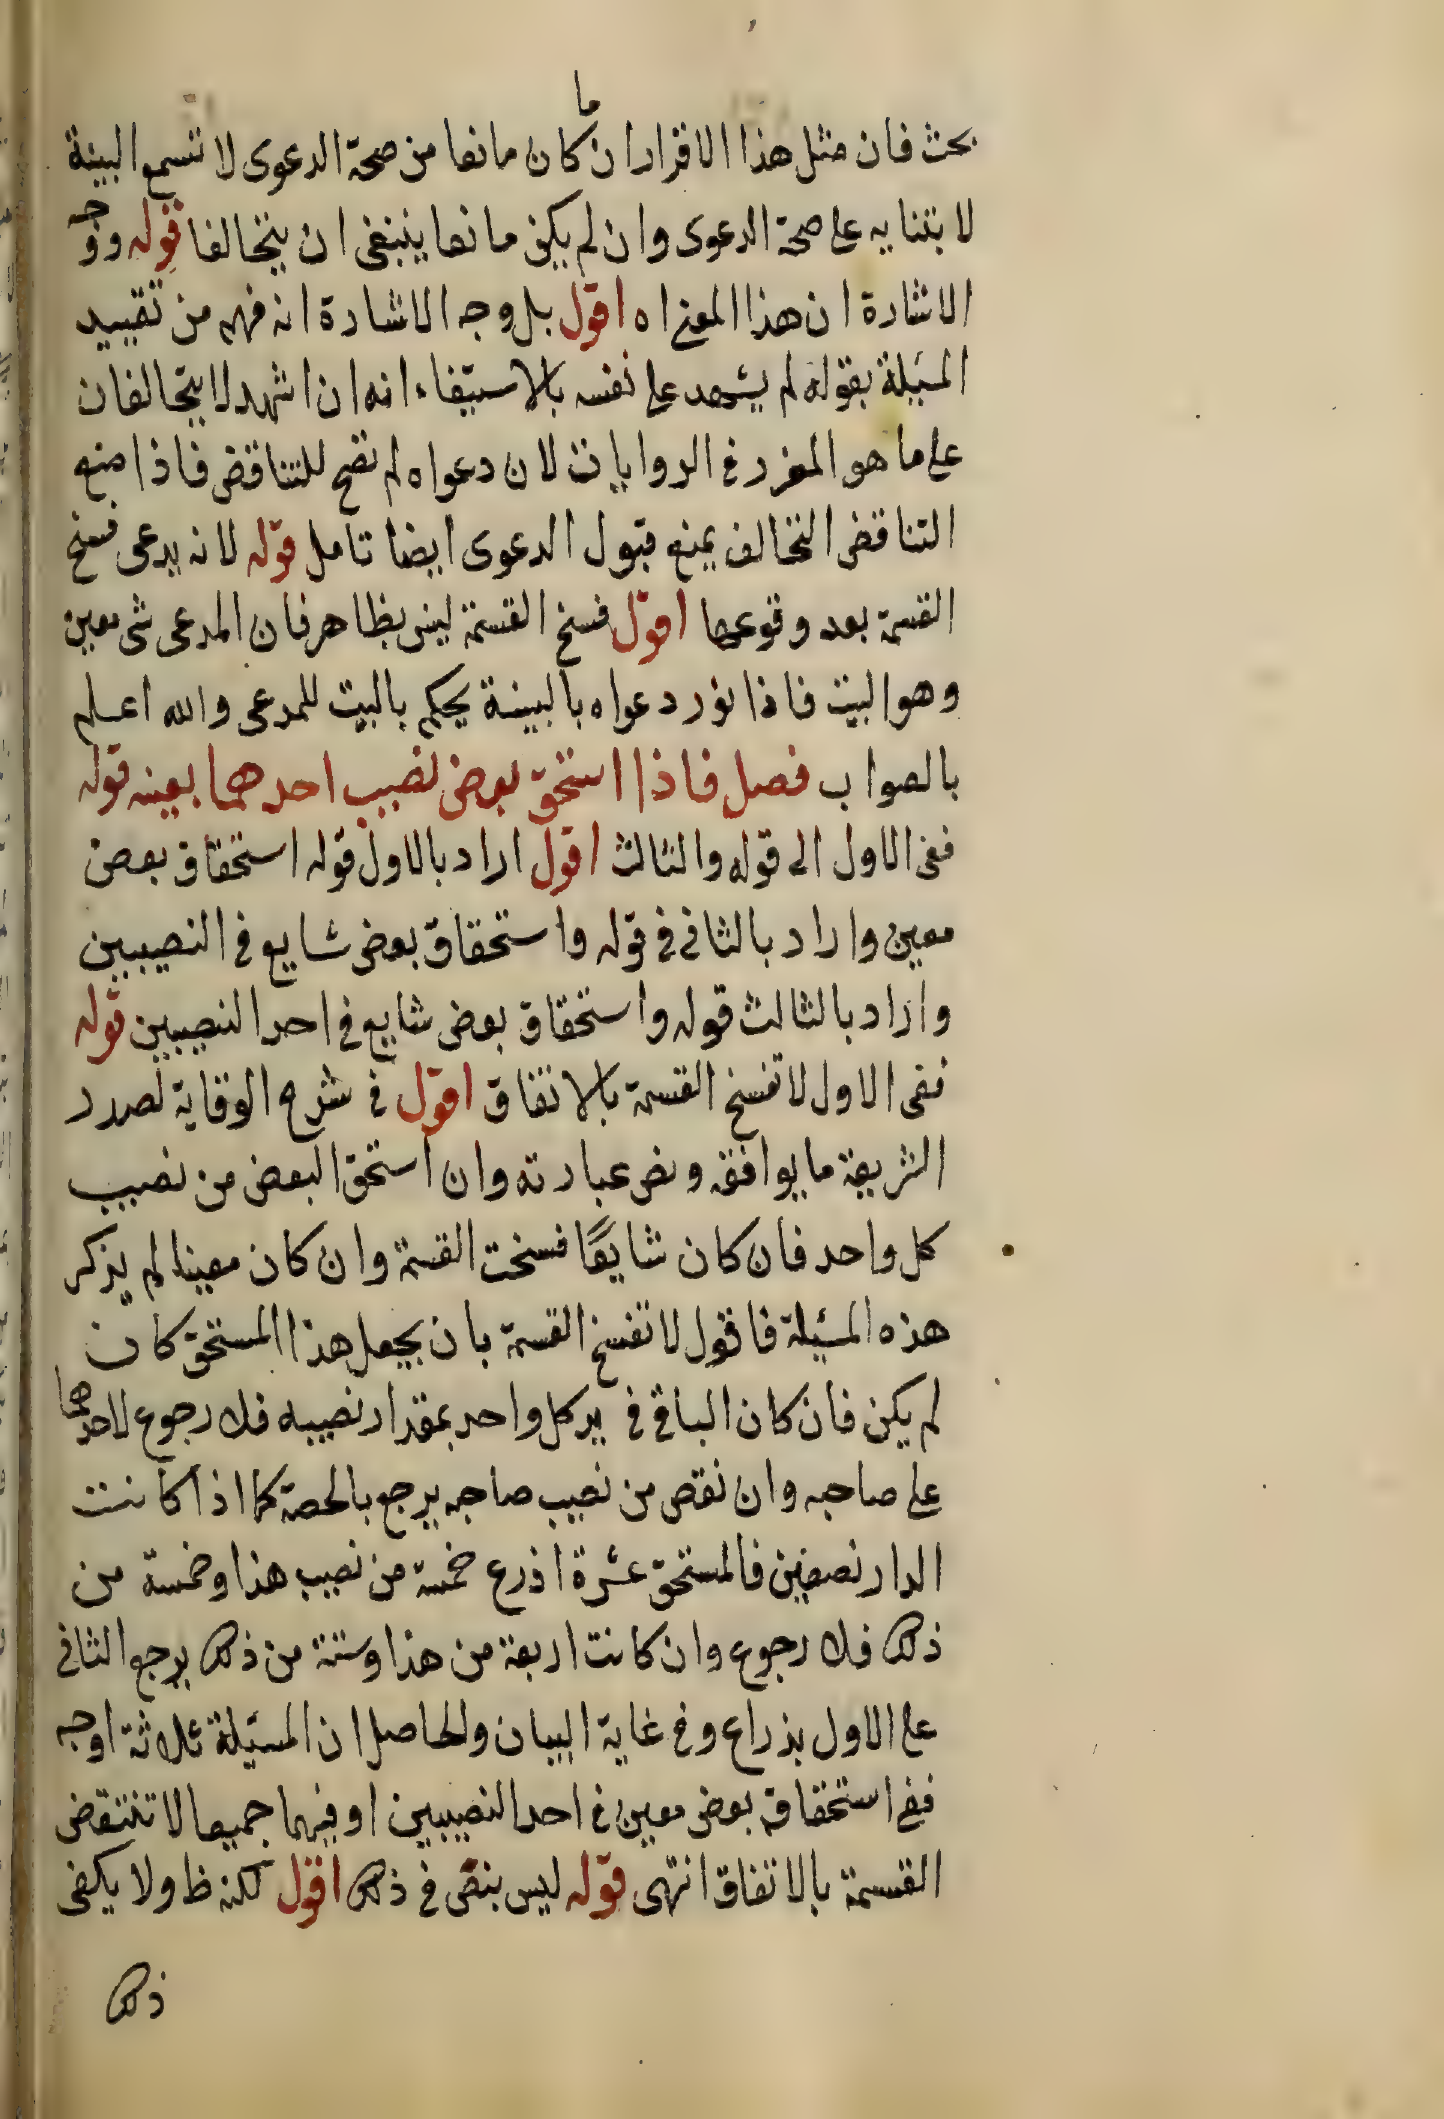 بحث فان مثل هذا الاقرار ان كان ما مانعا من صحة الدعوى لا تسمع البينة
لابتنايه على صحة الدعوى وان لم يكن مانعا ينبغى ان يتحالفا قوله ووجه
الاشارة ان هذا المعنى اه اقول بل وجه الاشارة انه فهم من تقييد
المسئلة بقوله لم يشهد على نفسه بالاستيفاء انه ان اشهد لا يتحالفان
على ما هو المقرر فى الروايات لان دعواه لم تصح للتناقض فاذا منع
التناقض التحالف يمنع قبول الدعوى ايضا تامل قوله لانه يدعى فسخ
القسمة بعد وقوعها اقول فسخ القسمة ليس بظاهر فان المدعى شى معين
وهو البيت فاذا نور دعواه بالبينة يحكم بالبيت للمدعى والله اعلم
بالصواب فصل فاذا استحق بعض نصيب احدهما بعينه قوله
ففى الاول الى قوله والثالث اقول اراد بالاول قوله استحقاق بعض
معين واراد بالثانى فى قوله واستحقاق بعض شايع فى النصيبين
واراد بالثالث قوله واستحقاق بعض شايع فى احد النصيبين قوله
ففى الاول لا تفسخ القسمة بالاتفاق اقول فى شرح الوقاية لصدر
الشريعة ما يوافقه ونص عبارته وان استحق البعض من نصيب
كل واحد فان كان شايعًا فسخت القسمة وان كان معينا لم يذكر
هذه المسئلة فاقول لا تفسخ القسمة بان يجعل هذا المستحق كان
لم يكن فان كان الباقى فى يد كل واحد بمقدار نصيبه فلا رجوع لاحدهما
على صاحبه وان نقص من نصيب صاحبه يرجع بالحصة كما اذا كانت
الدار نصفين فالمستحق عشرة اذرع خمسة من نصيب هذا وخمسة من
ذلك فلا رجوع وان كانت اربعة من هذا وستة من ذلك يرجع الثانى
على الاول بذراع وفى غاية البيان والحاصل ان المسئلة ثلاثة اوجه
ففى استحقاق بعض معين فى احد النصيبين او فيهما جميعا لا تنتقض
القسمة بالاتفاق انتهى قوله ليس بنقى فى ذلك اقول لكنه ظ ولا يكفى
ذلك